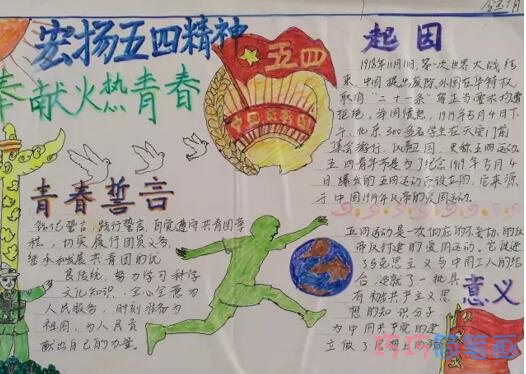 宏扬五四精神
奉献火热青春
五四
起因
1918年11月11日,第一次世界大战结
束,中国提出废除外国在华特权,
取消"二十一条"等正当要求均遭
拒绝,举国愤怒,1919年5月4日下
午,北京300多名学生在天安门前
集会游行,
五四青年节是为了纪念1919年5月4
日爆发的五四运动而设立的,它来源
于中国1919年反帝的爱国运动。
青春誓言
铭记誓言,践行誓言,自觉遵守共青团章
程,切实履行团员义务,
继承和发展共青团的优
良传统,努力学习科学
文化知识,全心全意为
人民服务,时刻准备为
祖国,为人民贡
献出自己的力量。
意义
五四运动是一次彻底的不妥协的反
帝反封建的爱国运动。它促进
了马克思主义与中国工人的结
合,造就了一批具
有初共产主义思
想的知识分子,
为中国共产党的建
立做了思想上的